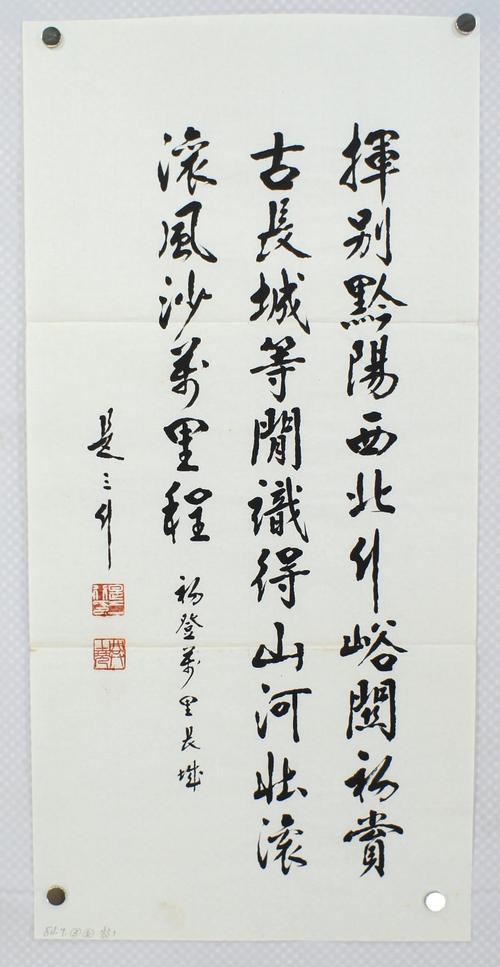 揮別黔陽西北行峪關初賞
古長城等閒識得山河壯滾
滾風沙萬里程
初登萬里長城
是三行